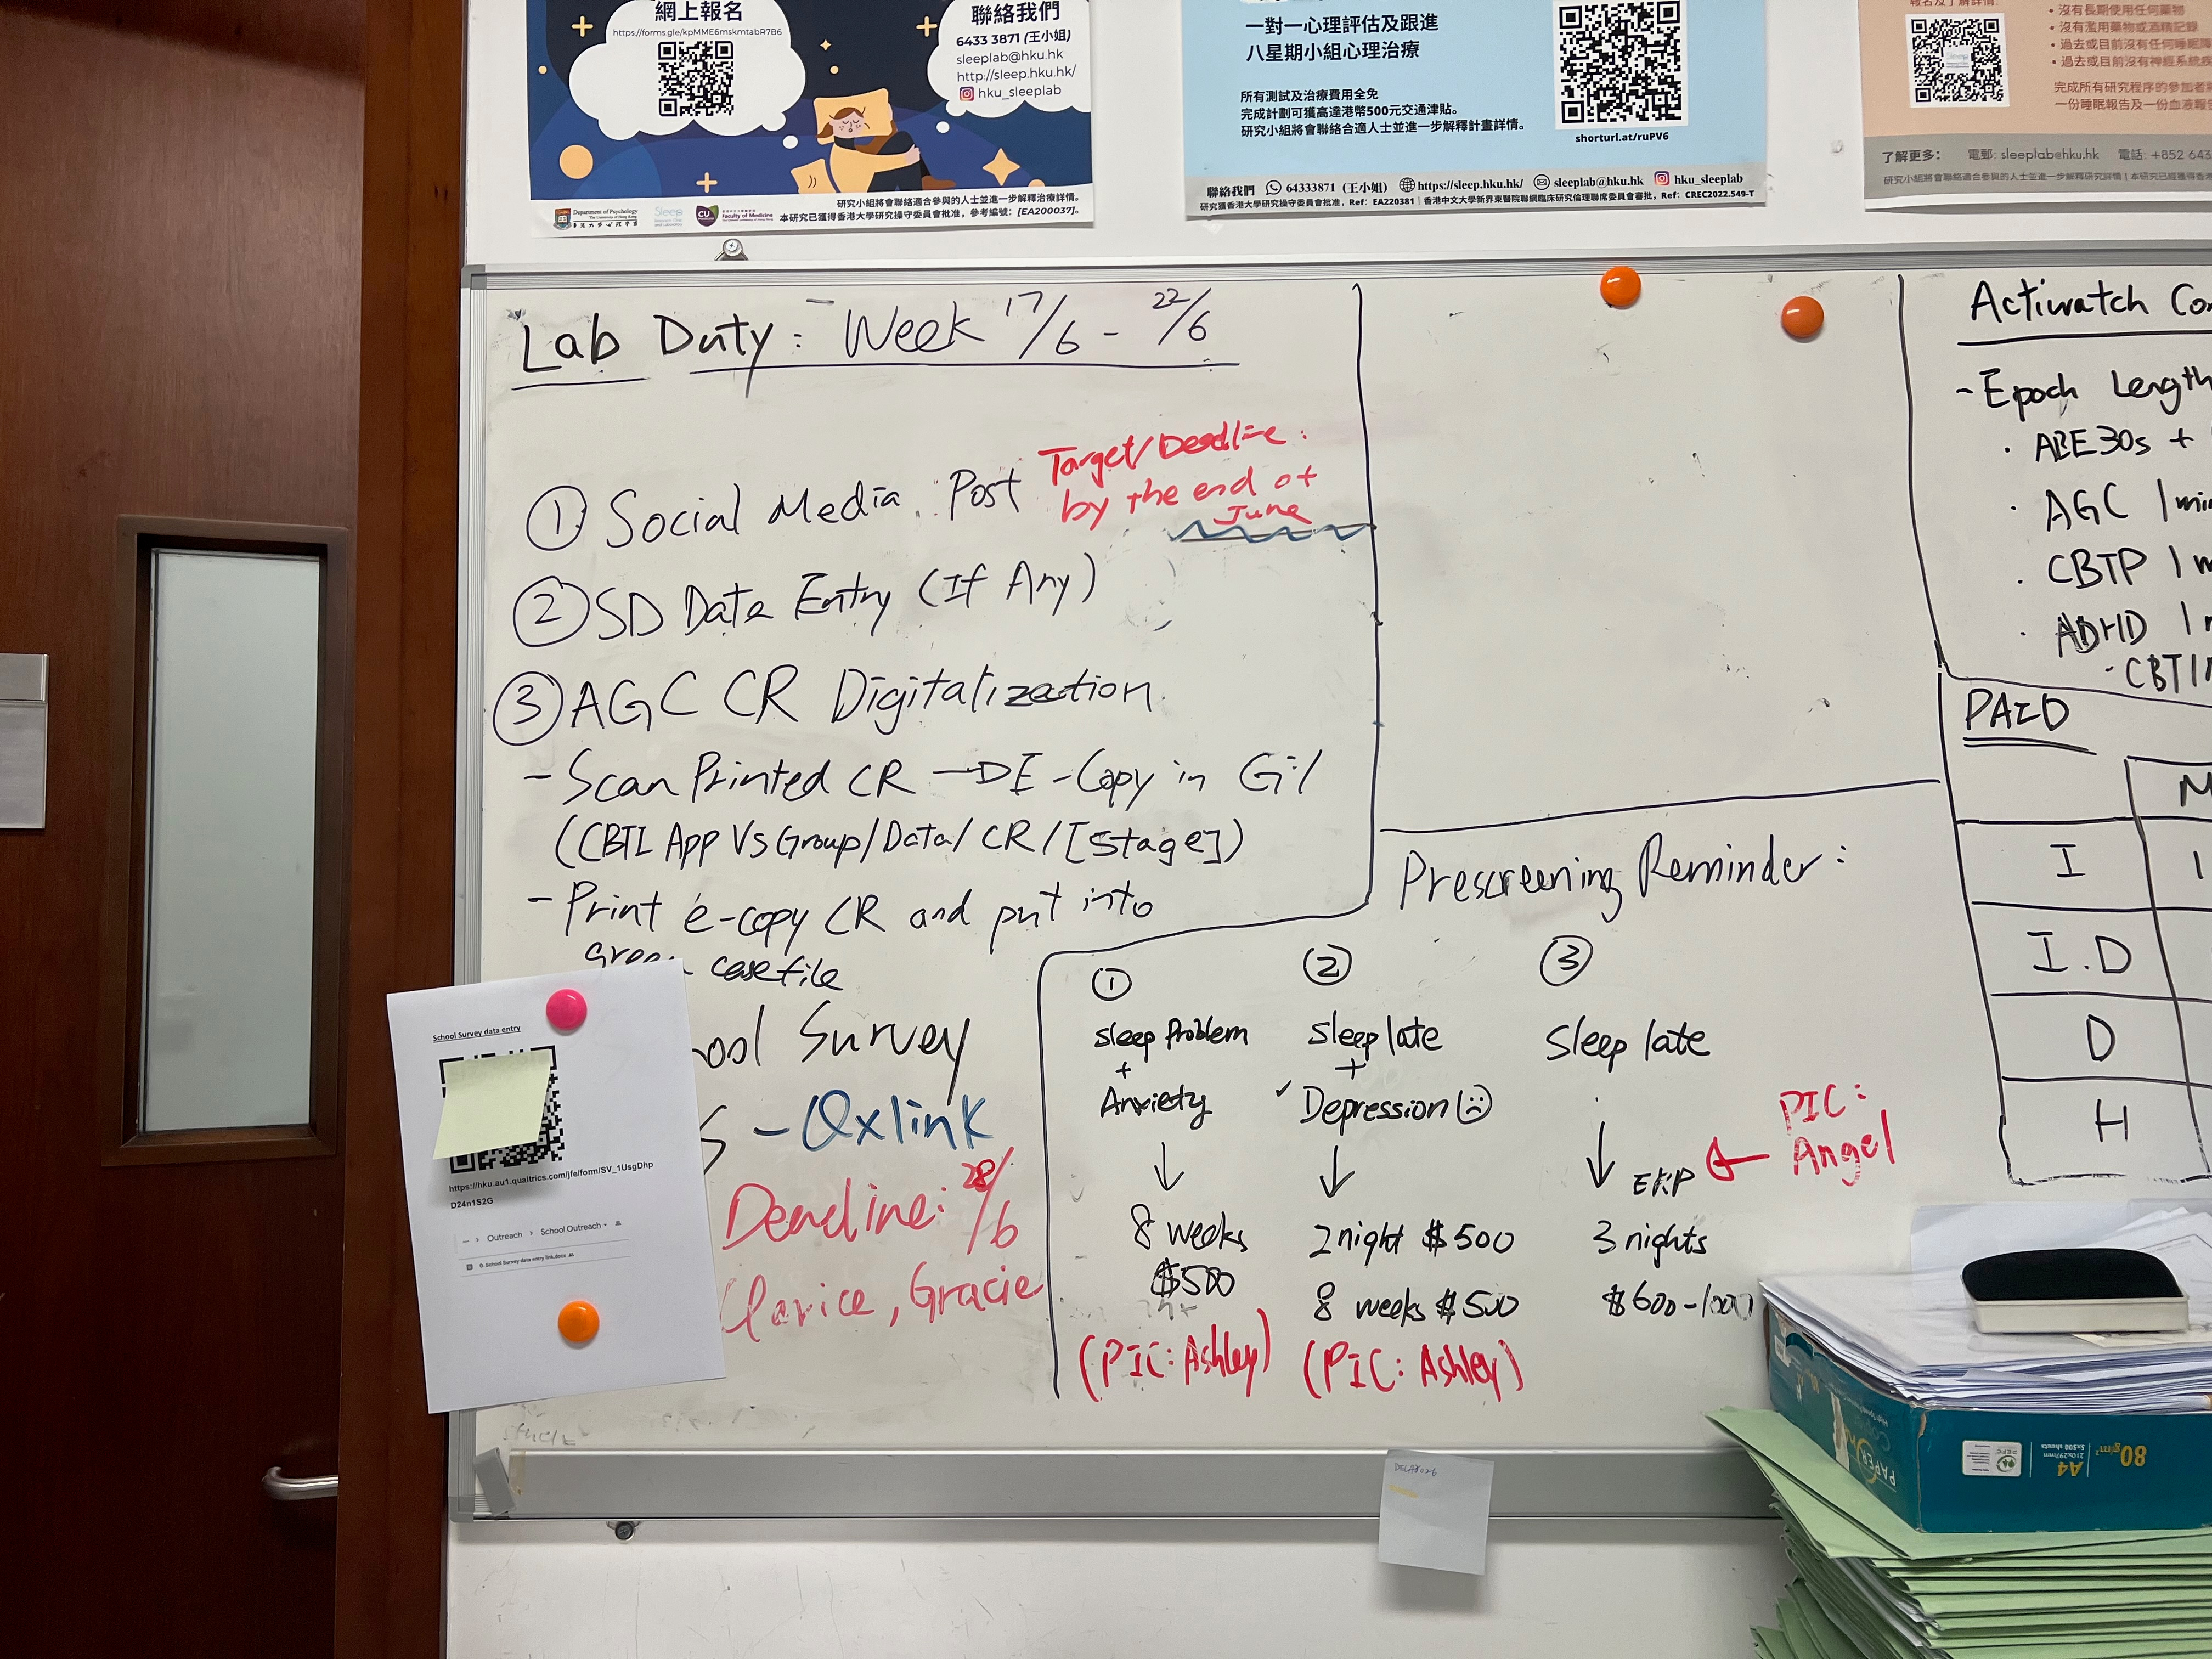 網上報名
https://forms.gle/kpMME6mskmtabR7B6
聯絡我們
6433 3871 (王小姐)
sleeplab@hku.hk
http://sleep.hku.hk/
hku_sleeplab
研究小組將會聯絡適合參與的人士並進一步解釋治療詳情。
本研究已獲得香港大學研究操守委員會批准，參考編號：[EA200037]。
Department of Psychology
The University of Hong Kong
香港大學心理學系
Sleep
CU
Faculty of Medicine
一對一心理評估及跟進
八星期小組心理治療
所有測試及治療費用全免
完成計劃可獲高達港幣500元交通津貼。
研究小組將會聯絡合適人士並進一步解釋計畫詳情。
shorturl.at/ruPV6
聯絡我們 64333871 (王小姐) https://sleep.hku.hk/ sleeplab@hku.hk hku_sleeplab
研究獲香港大學研究操守委員會批准，Ref：EA220381｜香港中文大學新界東醫院聯網臨床研究倫理聯席委員會審批，Ref：CREC2022.549-T
報名及了解詳情:
• 沒有長期使用任何藥物
• 沒有濫用藥物或酒精記錄
• 過去或目前沒有任何睡眠障
• 過去或目前沒有神經系統疾
完成所有研究程序的參加者將
一份睡眠報告及一份血液報
了解更多： 電郵: sleeplab@hku.hk 電話: +852 643
Lab Duty: Week 17/6 - 22/6
① Social Media Post
Target/Deadline:
by the end of
June
② SD Data Entry (If Any)
③ AGC CR Digitalization
- Scan Printed CR → E-Copy in G:/
(CBTI App Vs Group/Data/CR/[Stage])
- Print e-copy CR and put into
green casefile
ool Survey
- Qxlink
Deadline: 28/6
Clarice, Gracie
School Survey data entry
https://hku.au1.qualtrics.com/jfe/form/SV_1UsgDhp
D24n1S2G
Outreach > School Outreach
0. School Survey data entry link.docx
Prescreening Reminder:
①
Sleep Problem
+
Anxiety
↓
8 weeks
$500
(PIC: Ashley)
②
Sleep late
+
✓ Depression
↓
2 night $500
8 weeks $500
(PIC: Ashley)
③
Sleep late
↓ EKP ←
PIC:
Angel
3 nights
$600-1000
Actiwatch Co
- Epoch Length
· ABE 30s +
· AGC 1 mi
· CBTP 1 m
· ADHD 1
· CBTI
PAID
M
I 1
I.D
D
H
PAPER One
80g/m²
A4
210x297mm
5x500 sheets
PEFC